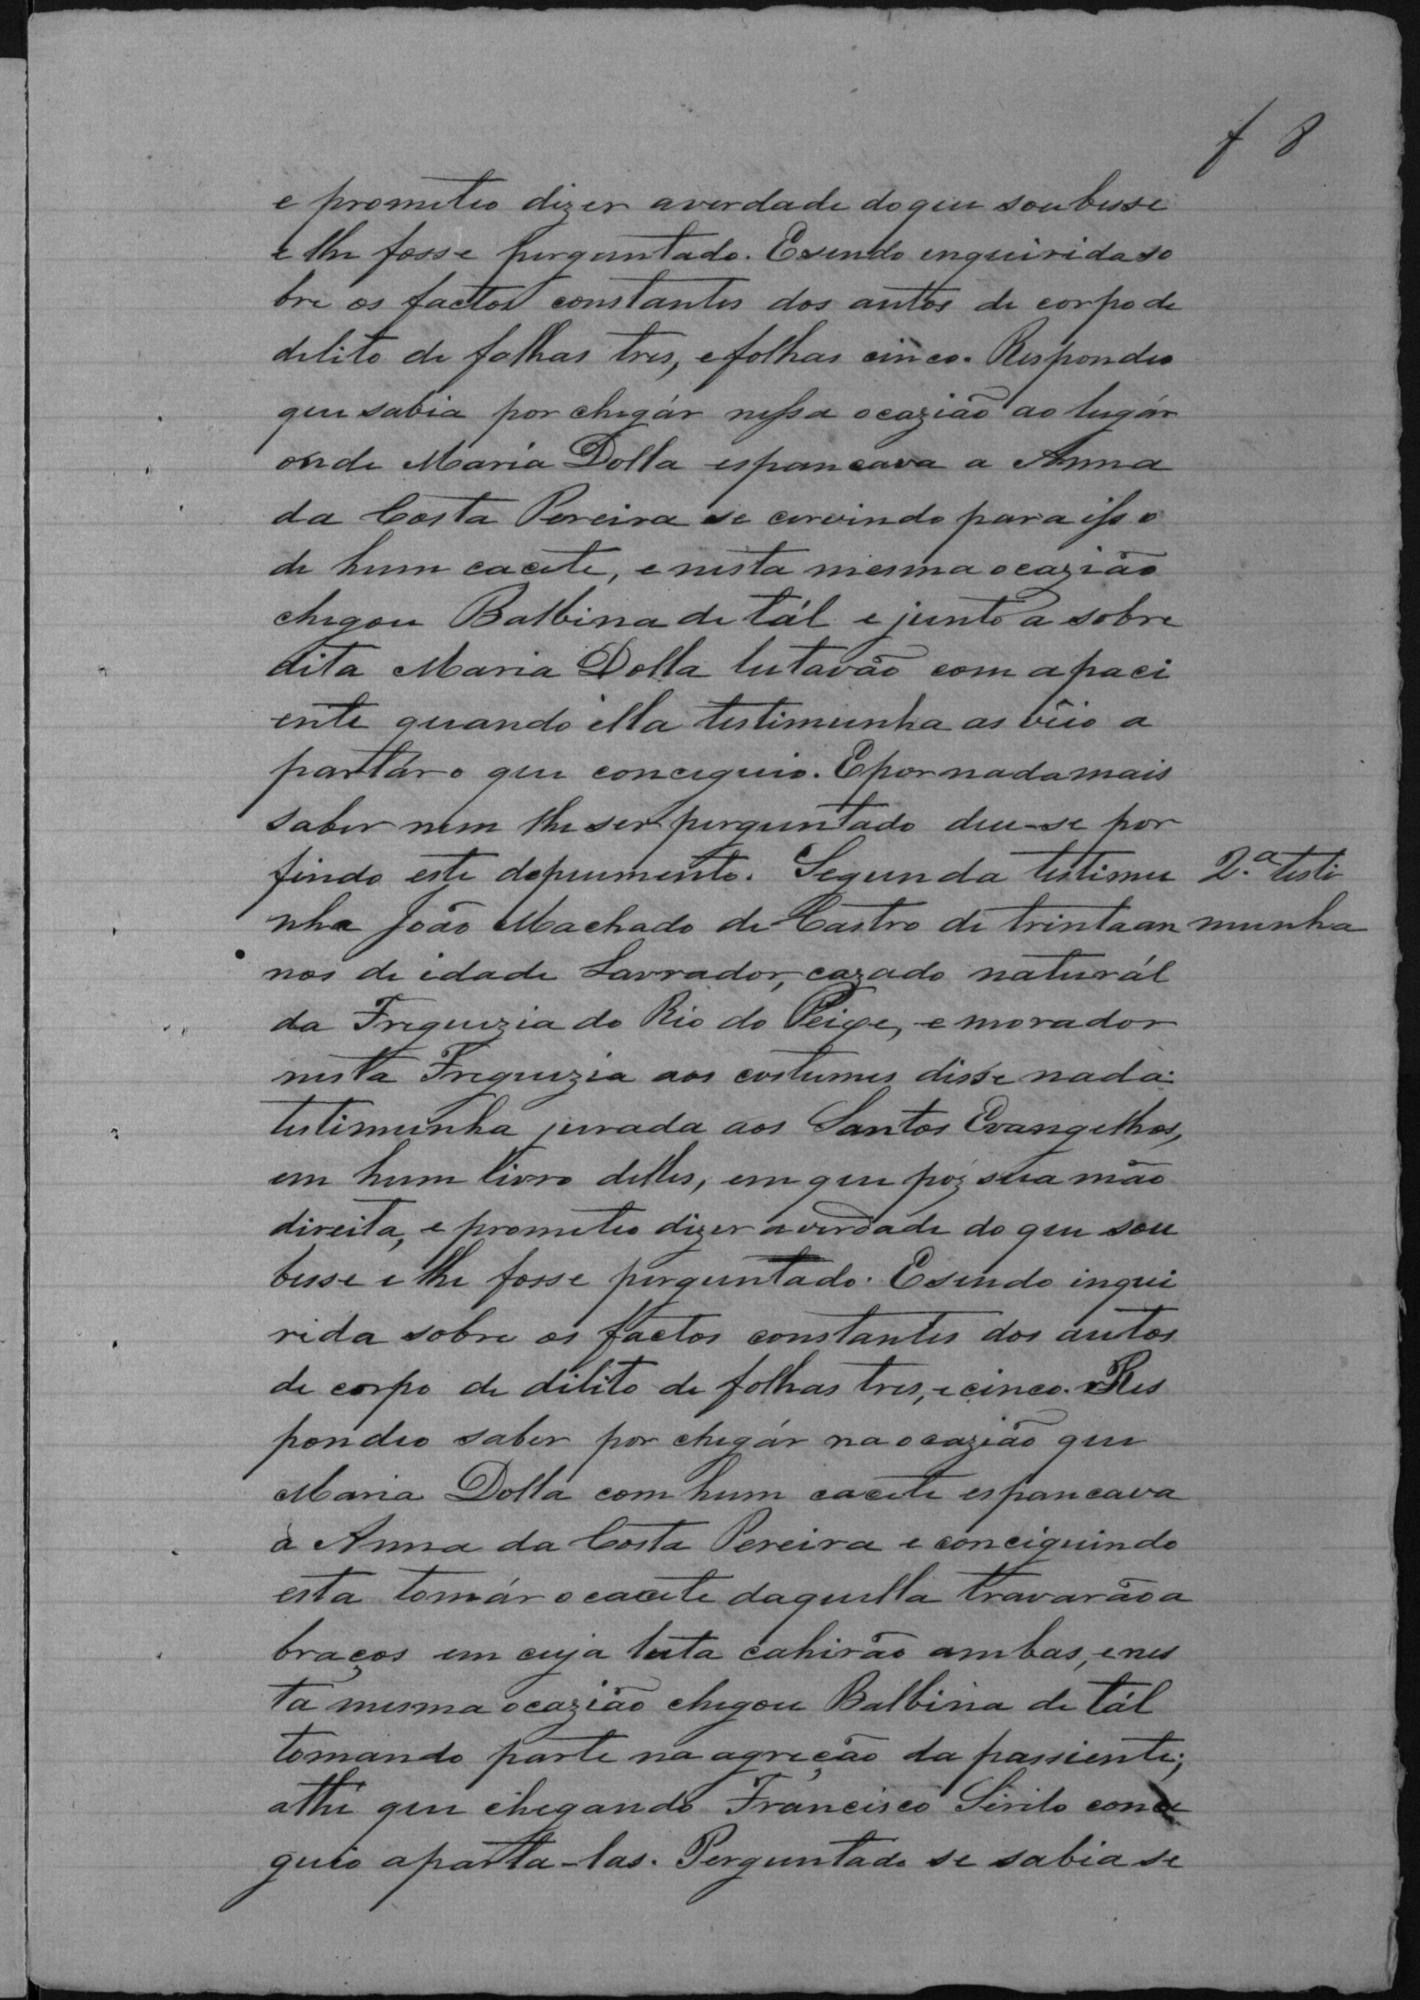 f 8
e prometeo dizer averdade doque soubesse
e lhe fosse perguntado. Esendo enquirida so
bre os factos constantes dos autos de corpo de
delito de folhas tres, efolhas cinco. Respondeo
que sabia por chegár nessa ocazião ao lugár
onde Maria Dolla espancava a Anna
da Costa Pereira se cervindo para isso
de hum cacete, e nesta mesma ocazião
chegou Balbina de tál e junto a sobre
dita Maria Dolla lutavão com apaci
ente quando ella testimunha as veio a
partár o que conceguio. Epor nadamais
saber nem lhe ser perguntado deu-se por
findo este depuimento. Segunda testimu
2.ª testi
nha João Machado de Castro de trintaan
munha
nos de idade Lavrador, cazado naturál
da Freguezia do Rio do Peixe, e morador
nesta Freguezia aos costumes disse nada:
testimunha jurada aos Santos Evangelhos,
em hum livro delles, em que poz sua mão
direita, e prometeo dizer averdade do que sou
besse e lhe fosse perguntado. Esendo inqui
rida sobre os factos constantes dos autos
de corpo de dilito de folhas tres, e cinco. Res
pondeo saber por chegár na ocazião que
Maria Dolla com hum cacete espancava
a Anna da Costa Pereira e conciguindo
esta tomár o cacete daquella travarão a
braços em cuja luta cahirão ambas, e nes
ta mesma ocazião chegou Balbina de tál
tomando parte na agreção da passiente;
athe que chegando Francisco Sirilo conce
guio aparta-las. Perguntado se sabia se